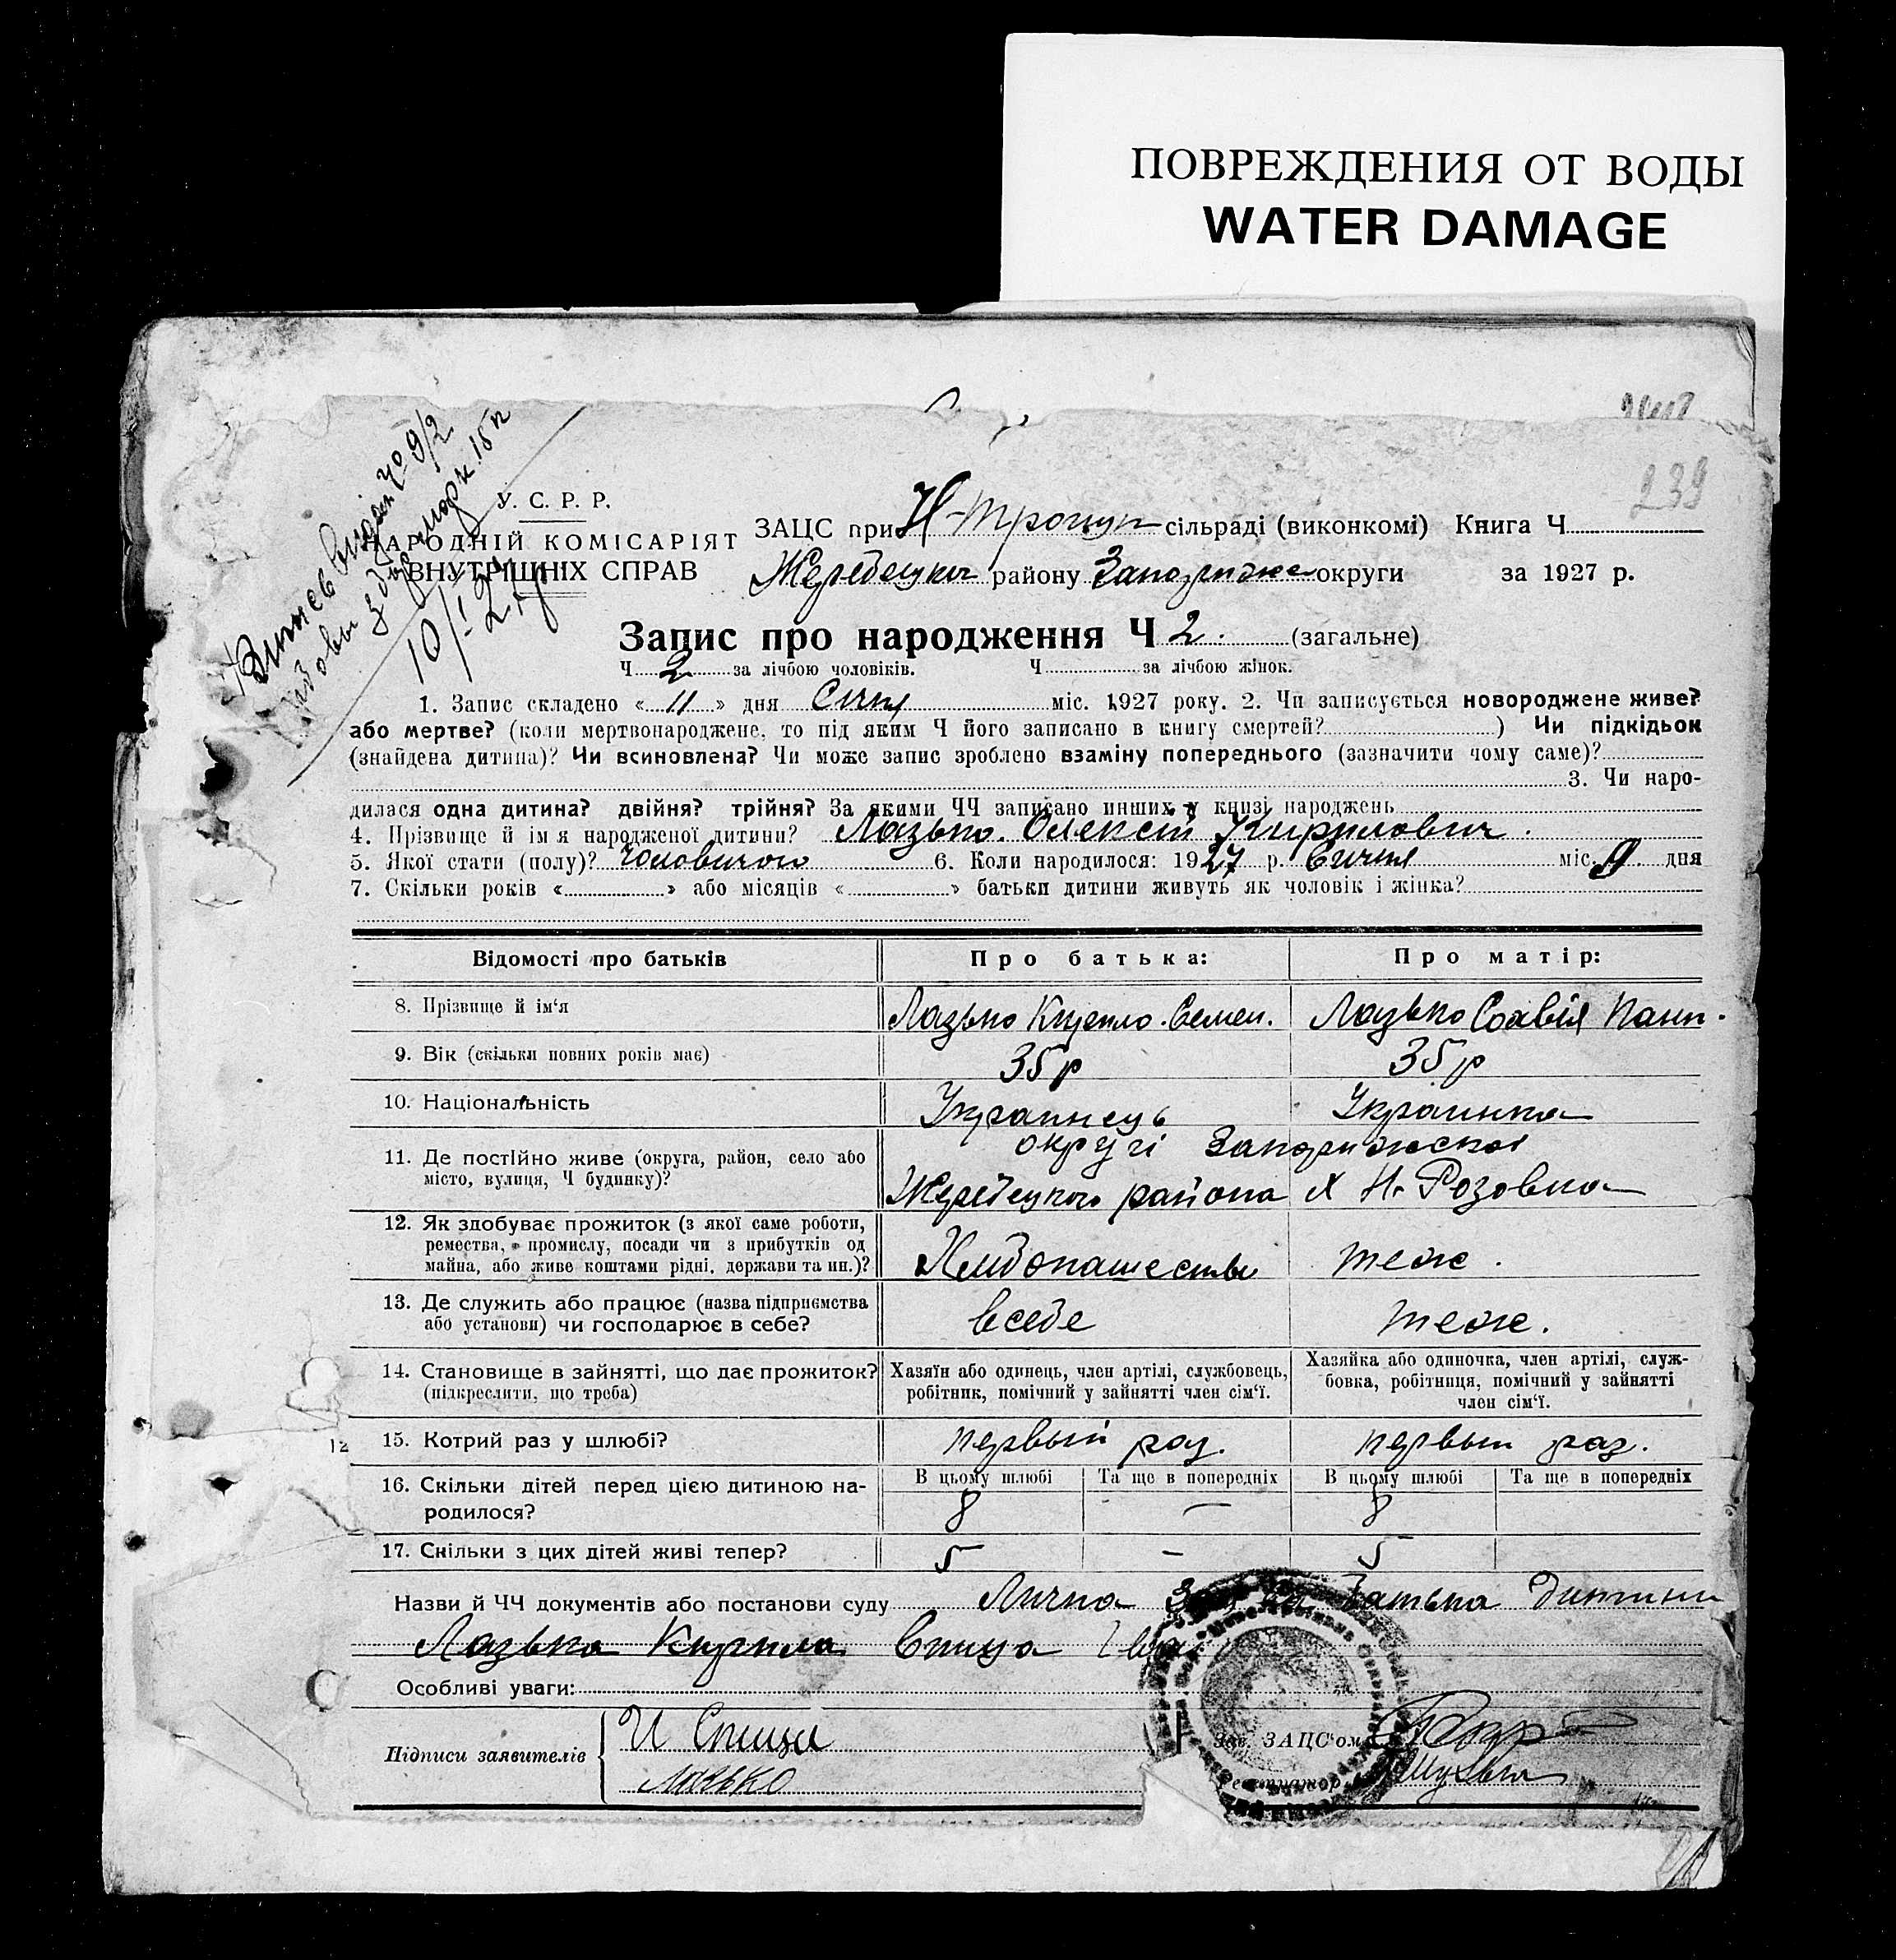 ПОВРЕЖДЕНИЯ ОТ ВОДЫ
WATER DAMAGE
239
У. С. Р. Р.
НАРОДНІЙ КОМІСАРІЯТ
ВНУТРІШНІХ СПРАВ
ЗАЦС при сільраді (виконкомі) Книга Ч
району округи за 1927 р.
Запис про народження Ч 2. (загальне)
Ч 2 за лічбою чоловіків. Ч за лічбою жінок.
1. Запис складено « 11 » дня Січня міс. 1927 року. 2. Чи записується новороджене живе?
або мертве? (коли мертвонароджене, то під яким Ч його записано в книгу смертей? ) Чи підкідьок
(знайдена дитина)? Чи всиновлена? Чи може запис зроблено взаміну попереднього (зазначити чому саме)?
3. Чи наро-
дилася одна дитина? двійня? трійня? За якими ЧЧ записано инших у книзі народжень
4. Прізвище й ім я народженої дитини? Лазько Олексій Кирилович.
5. Якої стати (полу)? 6. Коли народилося: 1927 р. Січня міс. 9 дня
7. Скільки років « » або місяців « » батьки дитини живуть як чоловік і жінка?
Відомості про батьків Про батька: Про матір:
8. Прізвище й ім‘я Лазько Кирило Семен. Лазько Софія
9. Вік (скільки повних років має) 35 р 35 р
10. Національність Українець Українка
округі Запорижскої
11. Де постійно живе (округа, район, село або
місто, вулиця, Ч будинку)?
Жеребецкого района х Н. Розовка
12. Як здобуває прожиток (з якої саме роботи,
ремества, промислу, посади чи з прибутків од
майна, або живе коштами рідні, держави та ин.)?
теж.
13. Де служить або працює (назва підприємства
або установи) чи господарює в себе?
в себе теж.
14. Становище в зайнятті, що дає прожиток?
(підкреслити, що треба)
Хазяїн або одинець, член артілі, службовець,
робітник, помічний у зайнятті член сім‘ї.
Хазяйка або одиночка, член артілі, служ-
бовка, робітниця, помічний у зайнятті
член сім‘ї.
12
15. Котрий раз у шлюбі? первый раз. первый раз.
16. Скільки дітей перед цією дитиною на-
родилося?
В цьому шлюбі Та ще в попередніх В цьому шлюбі Та ще в попередніх
8 — 8
17. Скільки з цих дітей живі тепер? 5 – 5
Назви й ЧЧ документів або постанови суду Лична батька дитини
Лазька Кирила Спица
Особливі уваги:
Підписи заявителів И Спица
Лазько
Зав. ЗАЦС‘ом
Реєстратор